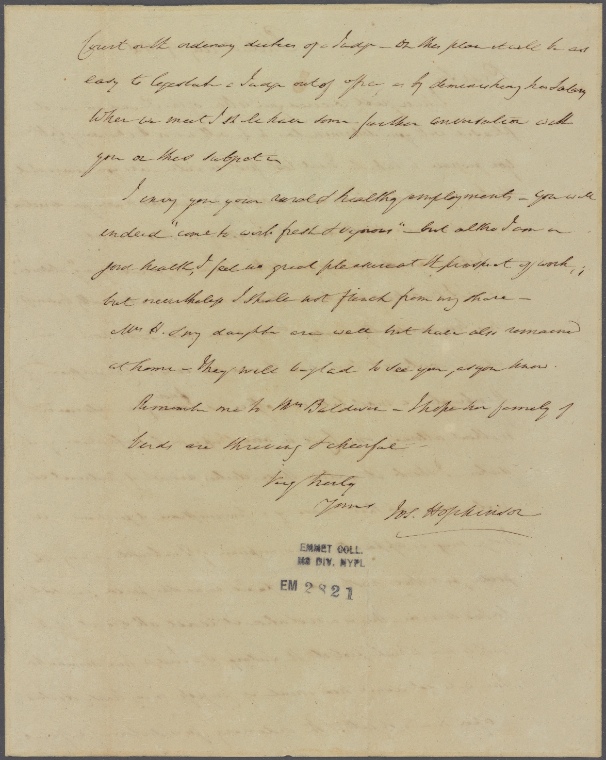 Court or the ordinary duties of a Judge – On this plan it will be as
easy to Legislate a Judge out of office as by diminishing his Salary
When we meet I shall have some further conversation with
you on this subject –
I envy you your rural & healthy employments – You will
indeed "come to work fresh & vigorous" – but altho I am in
good health, I feel no great pleasure at the prospect of work;
but nevertheless I shall not flinch from my share –
Mrs H. & my daughter are well but have also remained
at home – They will be glad to see you, as you know.
Remember me to Mrs Baldwin – I hope her family of
birds are thriving & cheerful –
Very truly
Yours
Jos. Hopkinson
EMMET COLL.
MS DIV. NYPL
EM 2821